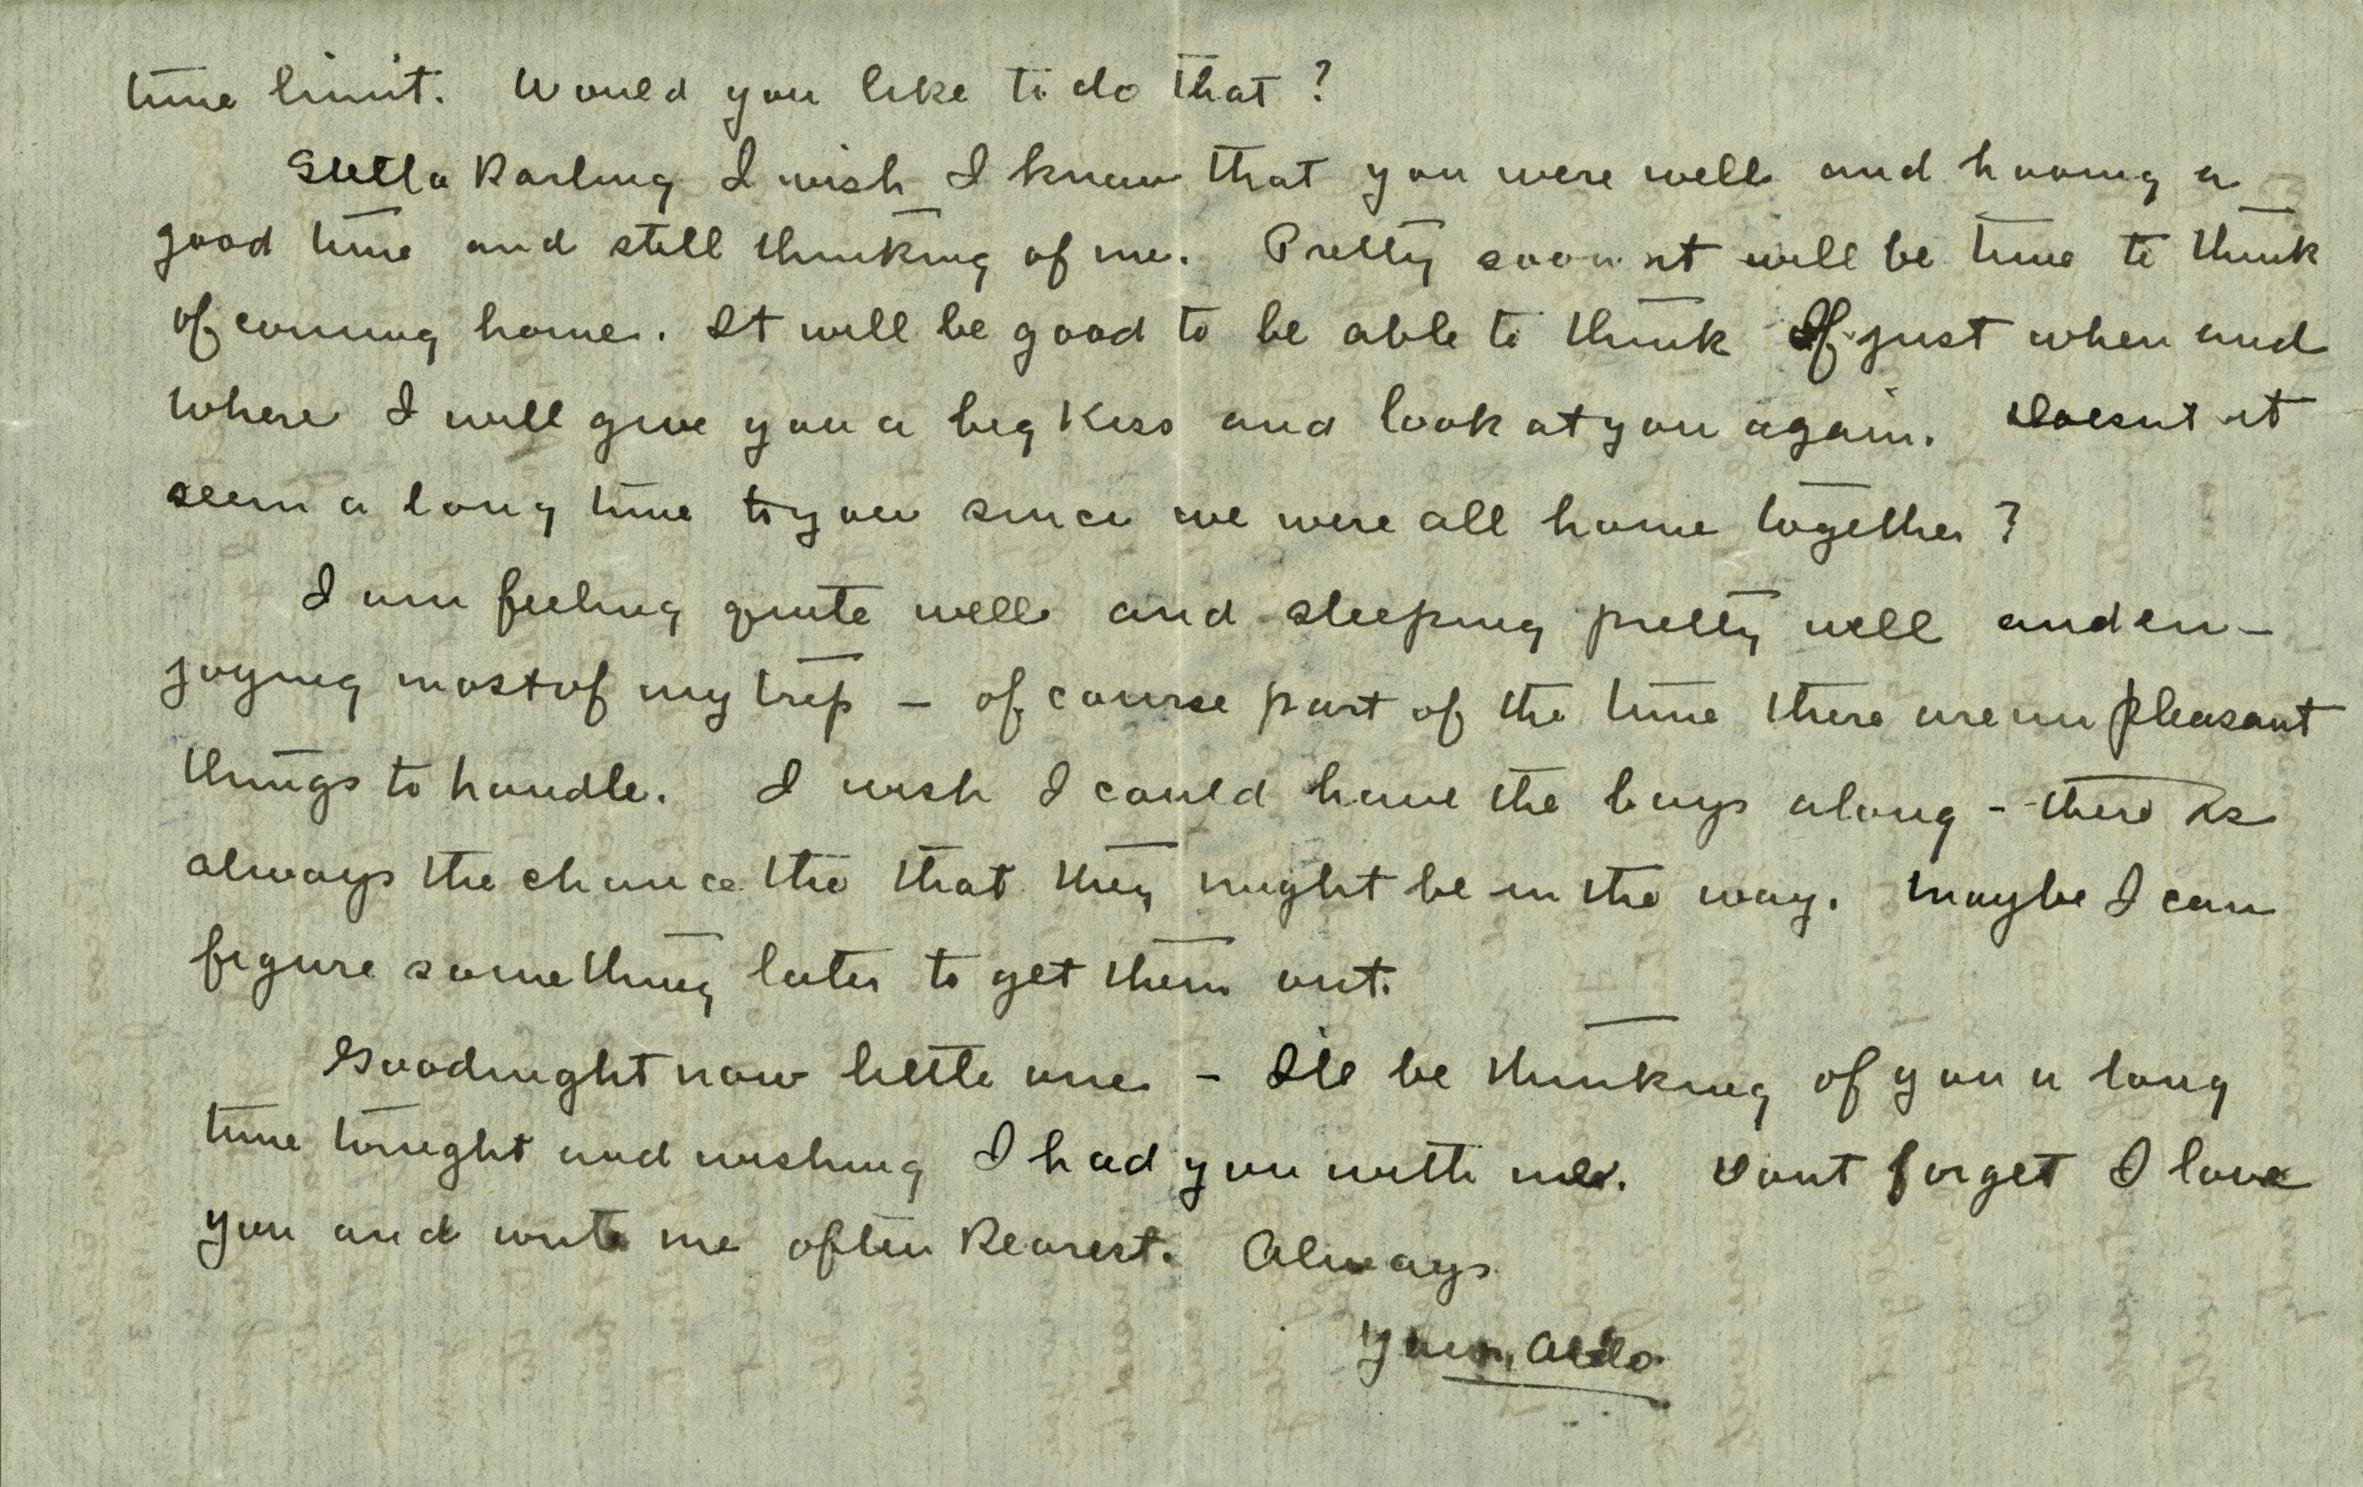 time limit. Would you like to do that?
Stella Darling I wish I knew that you were well and having a
good time and still thinking of me. Pretty soon it will be time to think
of coming home. It will be good to be able to think of just when and
where I will give you a big kiss and look at you again. Doesnt it
seem a long time to you since we were all home together?
I am feeling quite well and sleeping pretty well and en-
joying most of my trip - of course part of the time there are unpleasant
things to handle. I wish I could have the boys along - there is
always the chance tho that they might be in the way. Maybe I can
figure something later to get them out.
Goodnight now little one - Ill be thinking of you a long
time tonight and wishing I had you with me. Dont forget I love
you and write me often Dearest. Always
Your Aldo